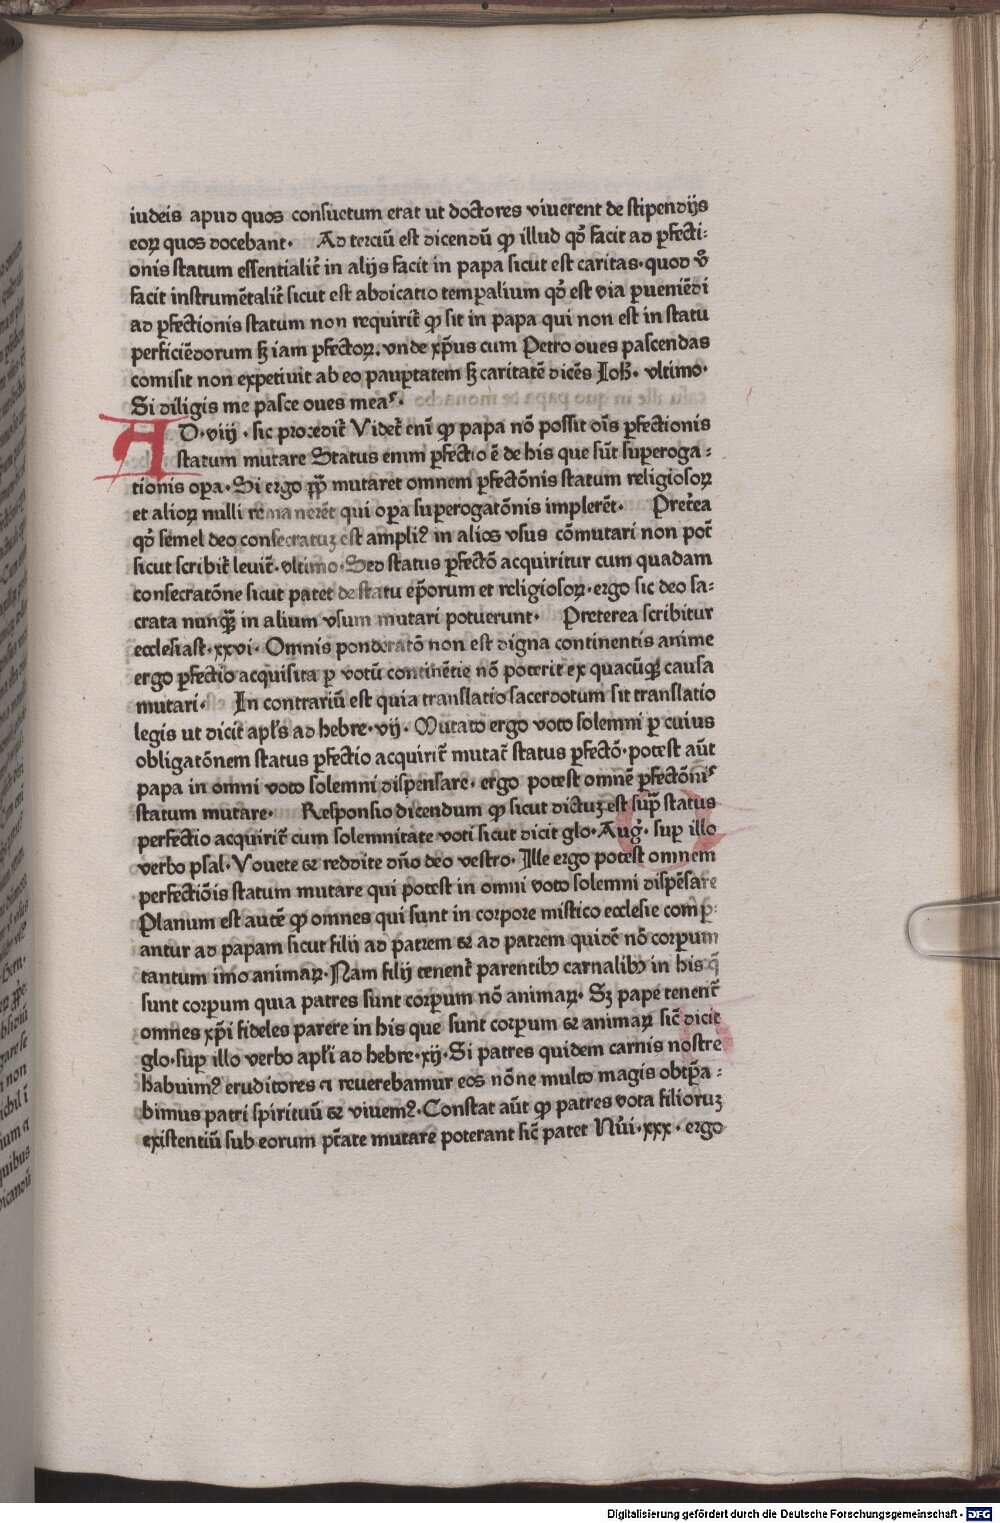 iudeis apud quos consuetum erat ut doctores viuerent de stipendijs
eoꝝ quos docebant· Ad terciū est dicendū ꝙ illud qđ facit ad ꝑfecti-
onis statum essentialiť in alijs facit in papa sicut est caritas·quod v̊
facit instrumētaliť sicut est abdicatio temꝑalium qđ est via ꝑueniēdi
ad ꝑfectionis statum non requiriť ꝙ sit in papa qui non est in statu
perficiēdorum ſꝫ iam ꝑfectoꝝ. vnde xp̄us cum Petro oues pascendas
comisit non expetiuit ab eo pauꝑtatem ſꝫ caritatē dicēs Joħ· vltimo·
Si diligis me pasce oues meaˢ·
AD·viij·sic proceđiť Videť enī ꝙ papa nō possit oīs ꝑfectionis
statum mutare Status enim ꝑfectio ē de his que sūt superoga-
tionis oꝑa·Si ergo ꝑꝑ mutaret omnem ꝑfectōnis statum religiosoꝝ
et alioꝝ nulli remanerēt qui oꝑa superogatōnis implerēt· Preťea
qđ semel deo consecratuꝫ est ampliꝰ in alios vsus cōmutari non poť
sicut scribiť leuiť·vltimo·Sed status ꝑfectō acquiritur cum quadam
consecratōne sicut patet de statu ep̄orum et religiosoꝝ·ergo sic deo sa-
crata nunꝗ̄ in alium vsum mutari potuerunt· Preterea scribitur
ecclesiast·xxvi· Omnis ponderatō non est digna continentis anime
ergo ꝑfectio acquisita ꝑ votū continētie nō poterit ex quacūqꝫ causa
mutari· In contrariū est quia translatio sacerdotum sit translatio
legis ut diciť apl̄s ad hebre·vij· Mutato ergo voto solemni ꝑ cuius
obligatōnem status ꝑfectio acquiriť mutať status ꝑfectō·potest aūt
papa in omni voto solemni dispensare· ergo potest omnē ꝑfectōniˢ
statum mutare· Responsio dicendum ꝙ sicut dictuꝫ est sup̄ status
perfectio acquiriť cum solemnitate voti sicut dicit glo·Auḡ·suꝑ illo
verbo psal·Vouete et reddite dn̄o deo vestro·Ille ergo potest omnem
perfectiōis statum mutare qui potest in omni voto solemni dispēsare
Planum est autē ꝙ omnes qui sunt in corpore mistico ecclesie comꝑ-
antur ad papam sicut filij ad patrem et ad patrem quidē nō corpum
tantum imo animaꝝ·Nam filij tenenť parentibꝫ carnalibꝫ in his q̄
sunt corpum quia patres sunt corpum nō animaꝝ·Sꝫ pape tenenť
omnes xp̄i fideles parere in his que sunt corpum et animaꝝ sic̄ dicit
glo·suꝑ illo verbo apl̄i ad hebre·xij·Si patres quidem carnis nostre
habuimꝰ eruditores ⁊ reuerebamur eos nōne multo magis obtp̄a-
bimus patri spirituū et viuemꝰ·Constat aūt ꝙ patres vota filioruꝫ
existentiū sub eorum pt̄ate mutare poterant sic̄ patet Nūi·xxx·ergo
Digitalisierung gefördert durch die Deutsche Forschungsgemeinschaft - DFG